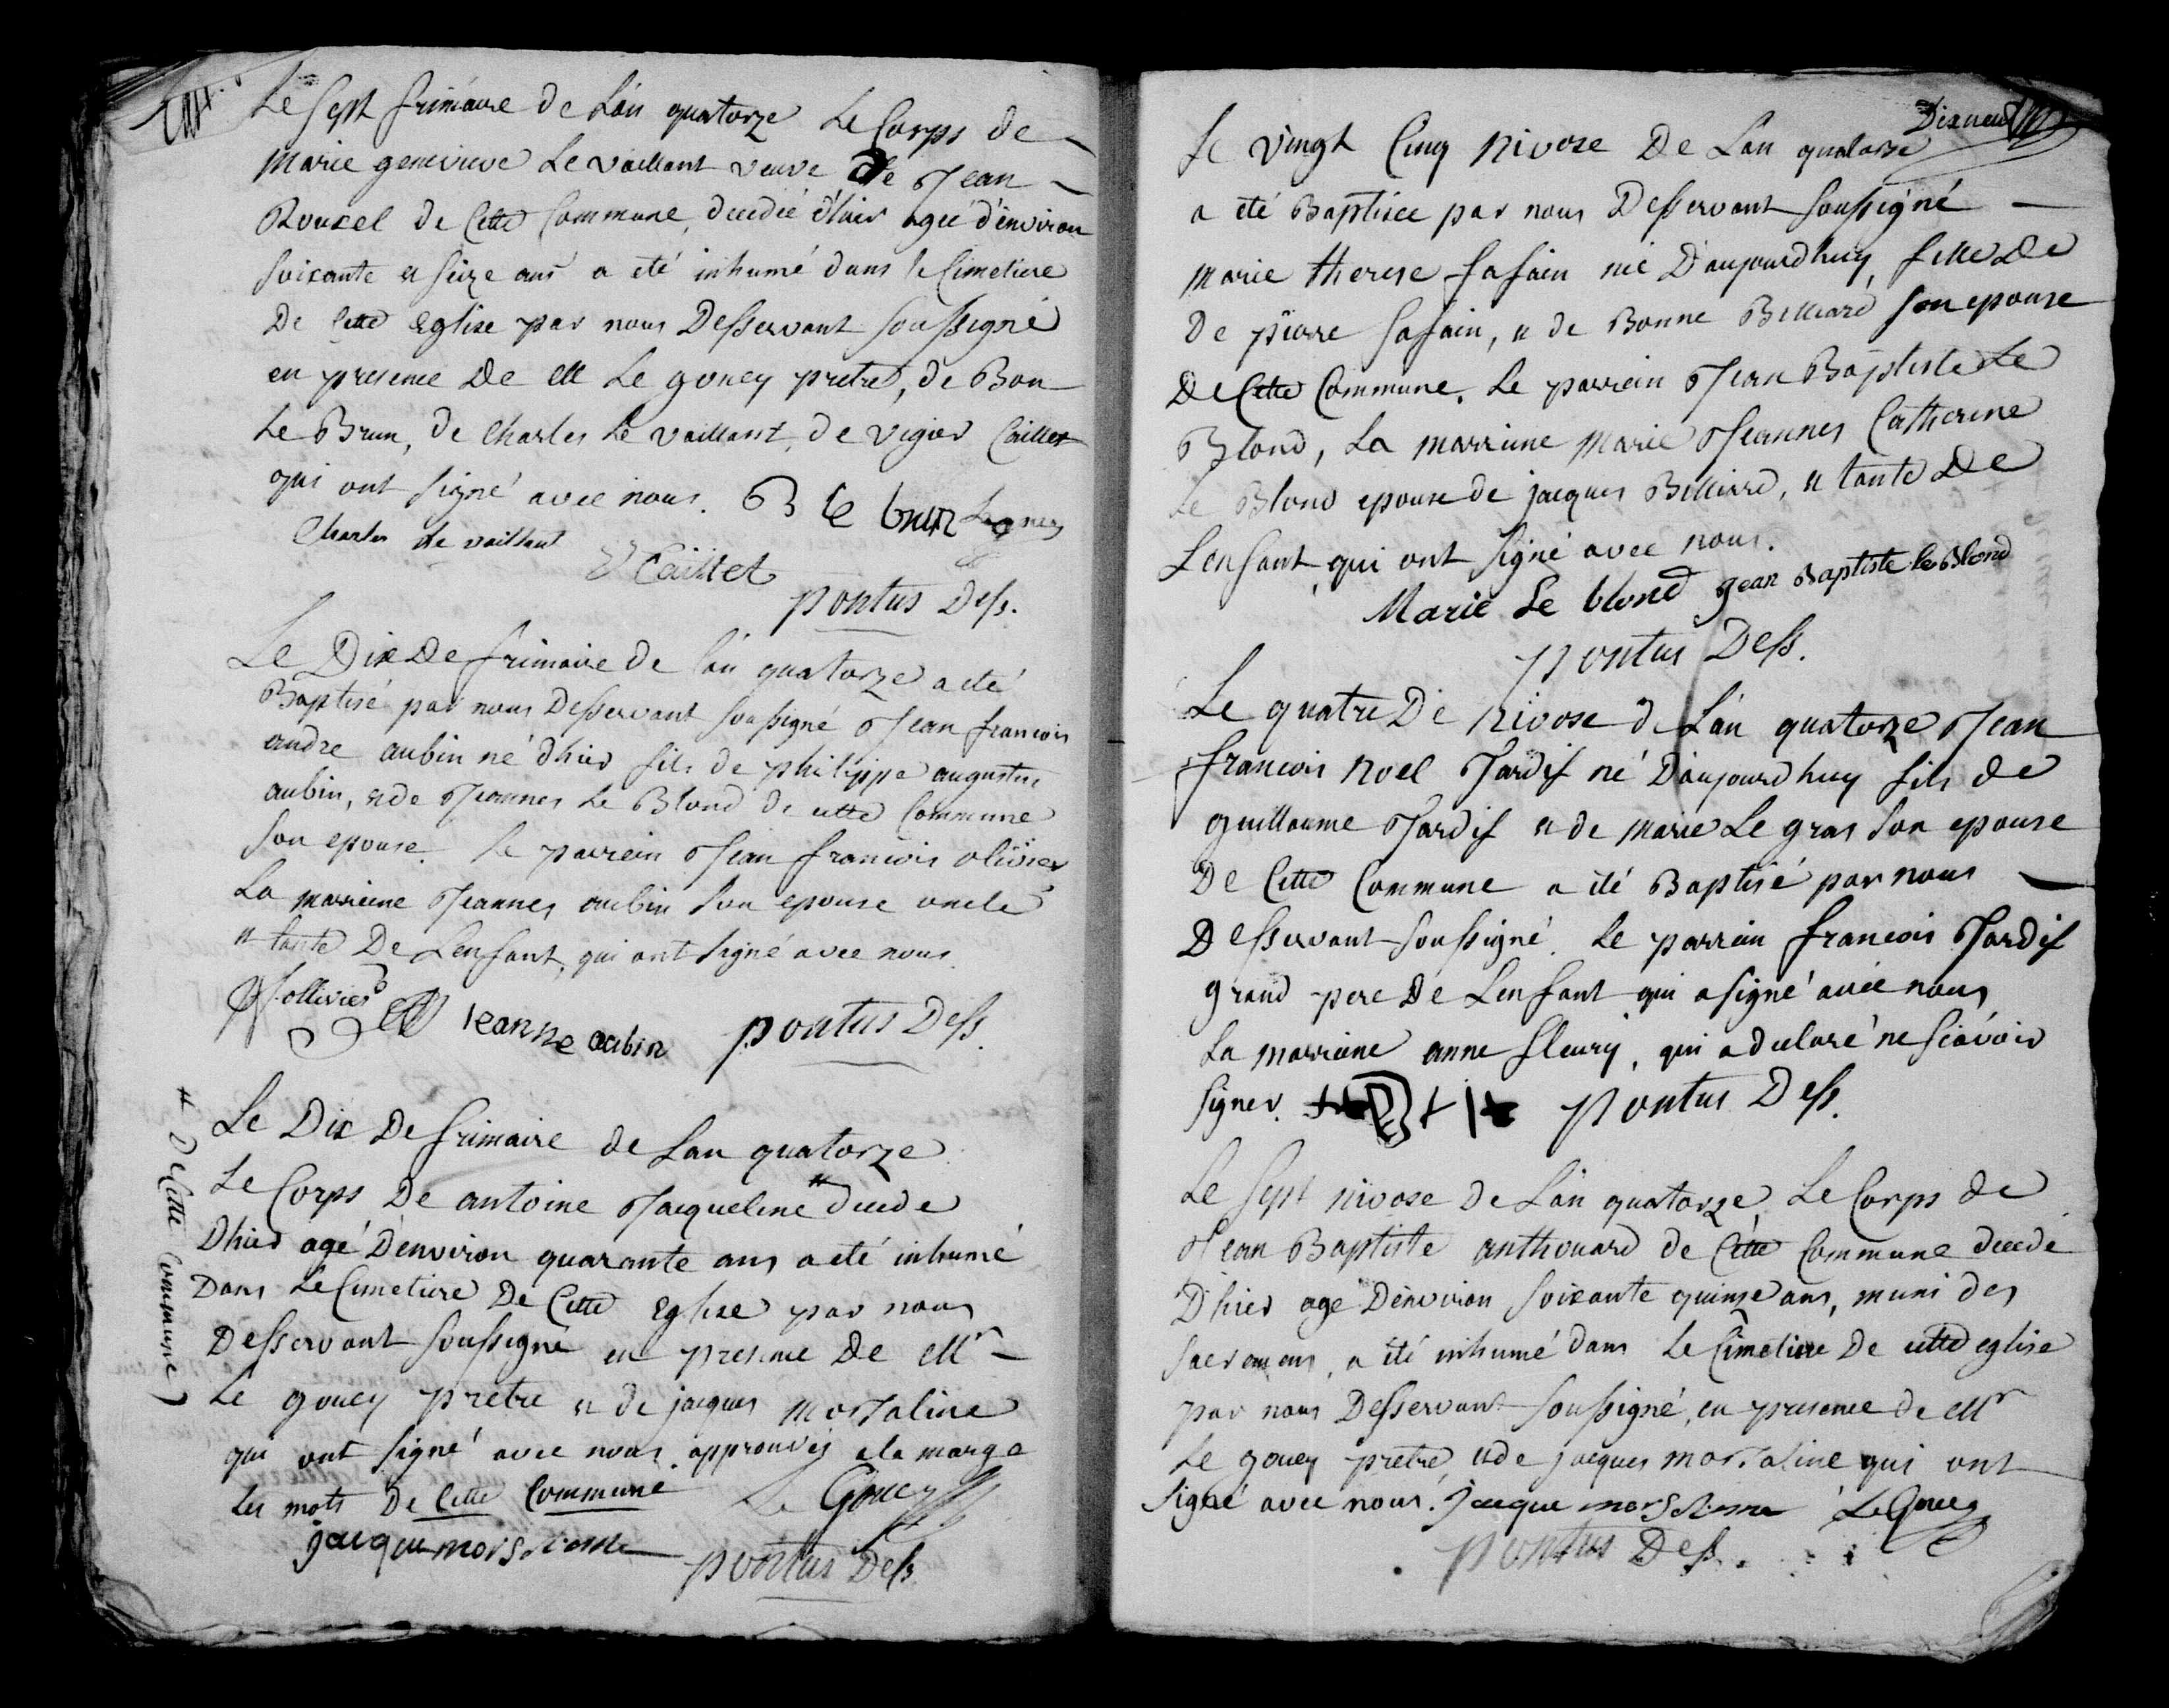 Le Sept frimaire de L'an quatorze Le Corps de
Marie genevieve Le vaillant veuve de Jean
Rouxel de Cette Commune, decedée d'hier agée d'environ
soixante et seize ans a eté inhumé dans le Cimetiere
De Cette Eglise par nous Desservant soussigné
en presence De Mr Le gouey pretre, de Bon
Le Brun, de Charles Le vaillant, de vigor Caillet
qui ont signé avec nous. B le brun Legouey
Charles le vaillant
V Caillet
pontus Dess.
Le Dix De frimaire de l'an quatorze a eté
Baptisé par nous Desservant soussigné Jean francois
andre aubin né d'hier fils de philippe augustus
aubin, et de Jeannes Le Blond de cette Commune
son epouse. Le parrein Jean francois olivier
La marreine Jeannes aubin son epouse oncle
et tante De L'enfant, qui ont signé avec nous.
ollivier jeanne aubin pontus Dess.
Le Dix De frimaire de L'an quatorze
Le Corps De antoine Jacqueline # decede
D'hier agé D'environ quarante ans a eté inhumé
Dans Le Cimetiere De Cette Eglise par nous
Desservant soussigné en presence De Mr
Le gouey pretre et de jacques morsaline
qui ont signé avec nous. approuvés a la marge
Les mots De Cette Commune Le Gouey
jacque morsaline
pontus Dess
# De Cette Commune
Dixneuf
Le vingt Cinq Nivose De L'an quatorse
a eté Baptisée par nous Desservant soussigné
Marie therese Safain née D'aujourdhuy, fille De
De pierre Safain, et de Bonne Billiard son epouse
De Cette Commune. Le parrein Jean Baptiste Le
Blond, La marreine Marie Jeannes Catherine
Le Blond epouse de jacques Billiard, et tante De
L'enfant qui ont signé avec nous.
Marie Le blond jean Baptiste le Blond
pontus Dess.
Le quatre De Nivose de L'an quatorze Jean
francois Noel Tardif né D'aujourdhuy fils de
guillaume Tardif et de marie Le gras son epouse
De Cette Commune a eté Baptisé par nous
Desservant soussigné. Le parrein francois Tardif
grand pere De L'enfant qui a signé avec nous
La marreine anne fleury, qui a declaré ne sçavoir
signer. pontus Dess.
Le Sept nivose de L'an quatorze Le Corps de
Jean Baptiste anthouard de Cette Commune decede
D'hier age D'environ soixante quinze ans, muni des
sacremens, a eté inhumé dans Le Cimetiere De cette eglise
par nous Desservant soussigné, en presence de Mr
Le gouey pretre, et de jacques morsaline qui ont
signé avec nous. jacque morsaline LeGouey
pontus Dess.